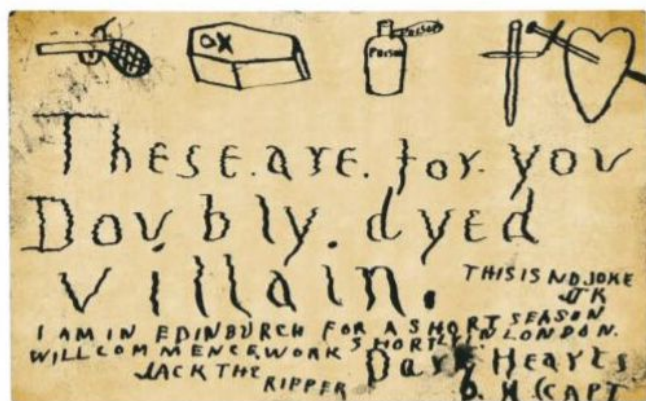 OX
POISON
POISON
These. are. for. you
Doubly. dyed
villain.
THIS IS NO JOKE
I AM IN EDINBURCH FOR A SHORT SEASON
WILL COMMENCE. WORK SHORTLY IN LONDON.
JACK THE
RIPPER
Dark Hearts
(CAPT